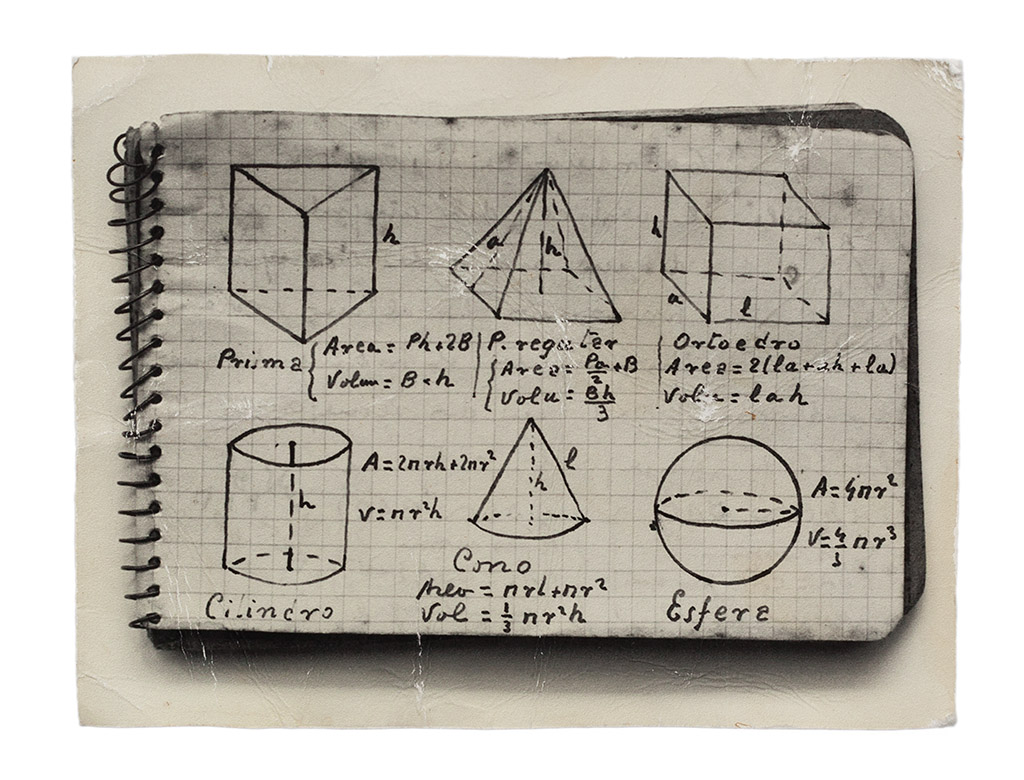 h
a
h
h
a
l
Prisma
Area = Ph+2B
Volum = B×h
P. regular
Area = Pa/2 +B
Volu = Bh/3
Ortoedro
Area = 2(la+ah+la)
Volu = lah
h
A = 2πrh+2πr²
V = πr²h
Cilindro
h
l
Cono
Area = πrl+πr²
Vol = 1/3 πr²h
A = 4πr²
V = 4/3 πr³
Esfera